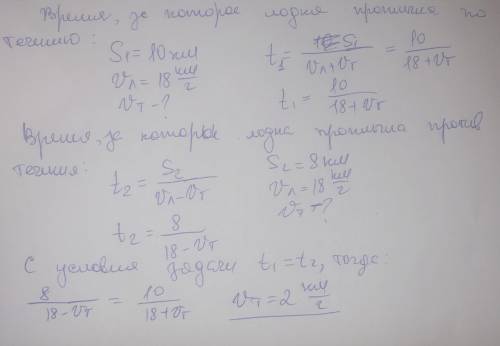 Время, за которое лодка проплыла по
течению:
S₁ = 10 км
vл = 18 км/г
vт - ?
t₁ = S₁/(vл+vт) = 10/(18+vт)
t₁ = 10/(18+vт)
Время, за которое лодка проплыла против
течения:
t₂ = S₂/(vл-vт)
t₂ = 8/(18-vт)
S₂ = 8 км
vл = 18 км/г
vт - ?
С условия задачи t₁ = t₂, тогда:
8/(18-vт) = 10/(18+vт)
vт = 2 км/г